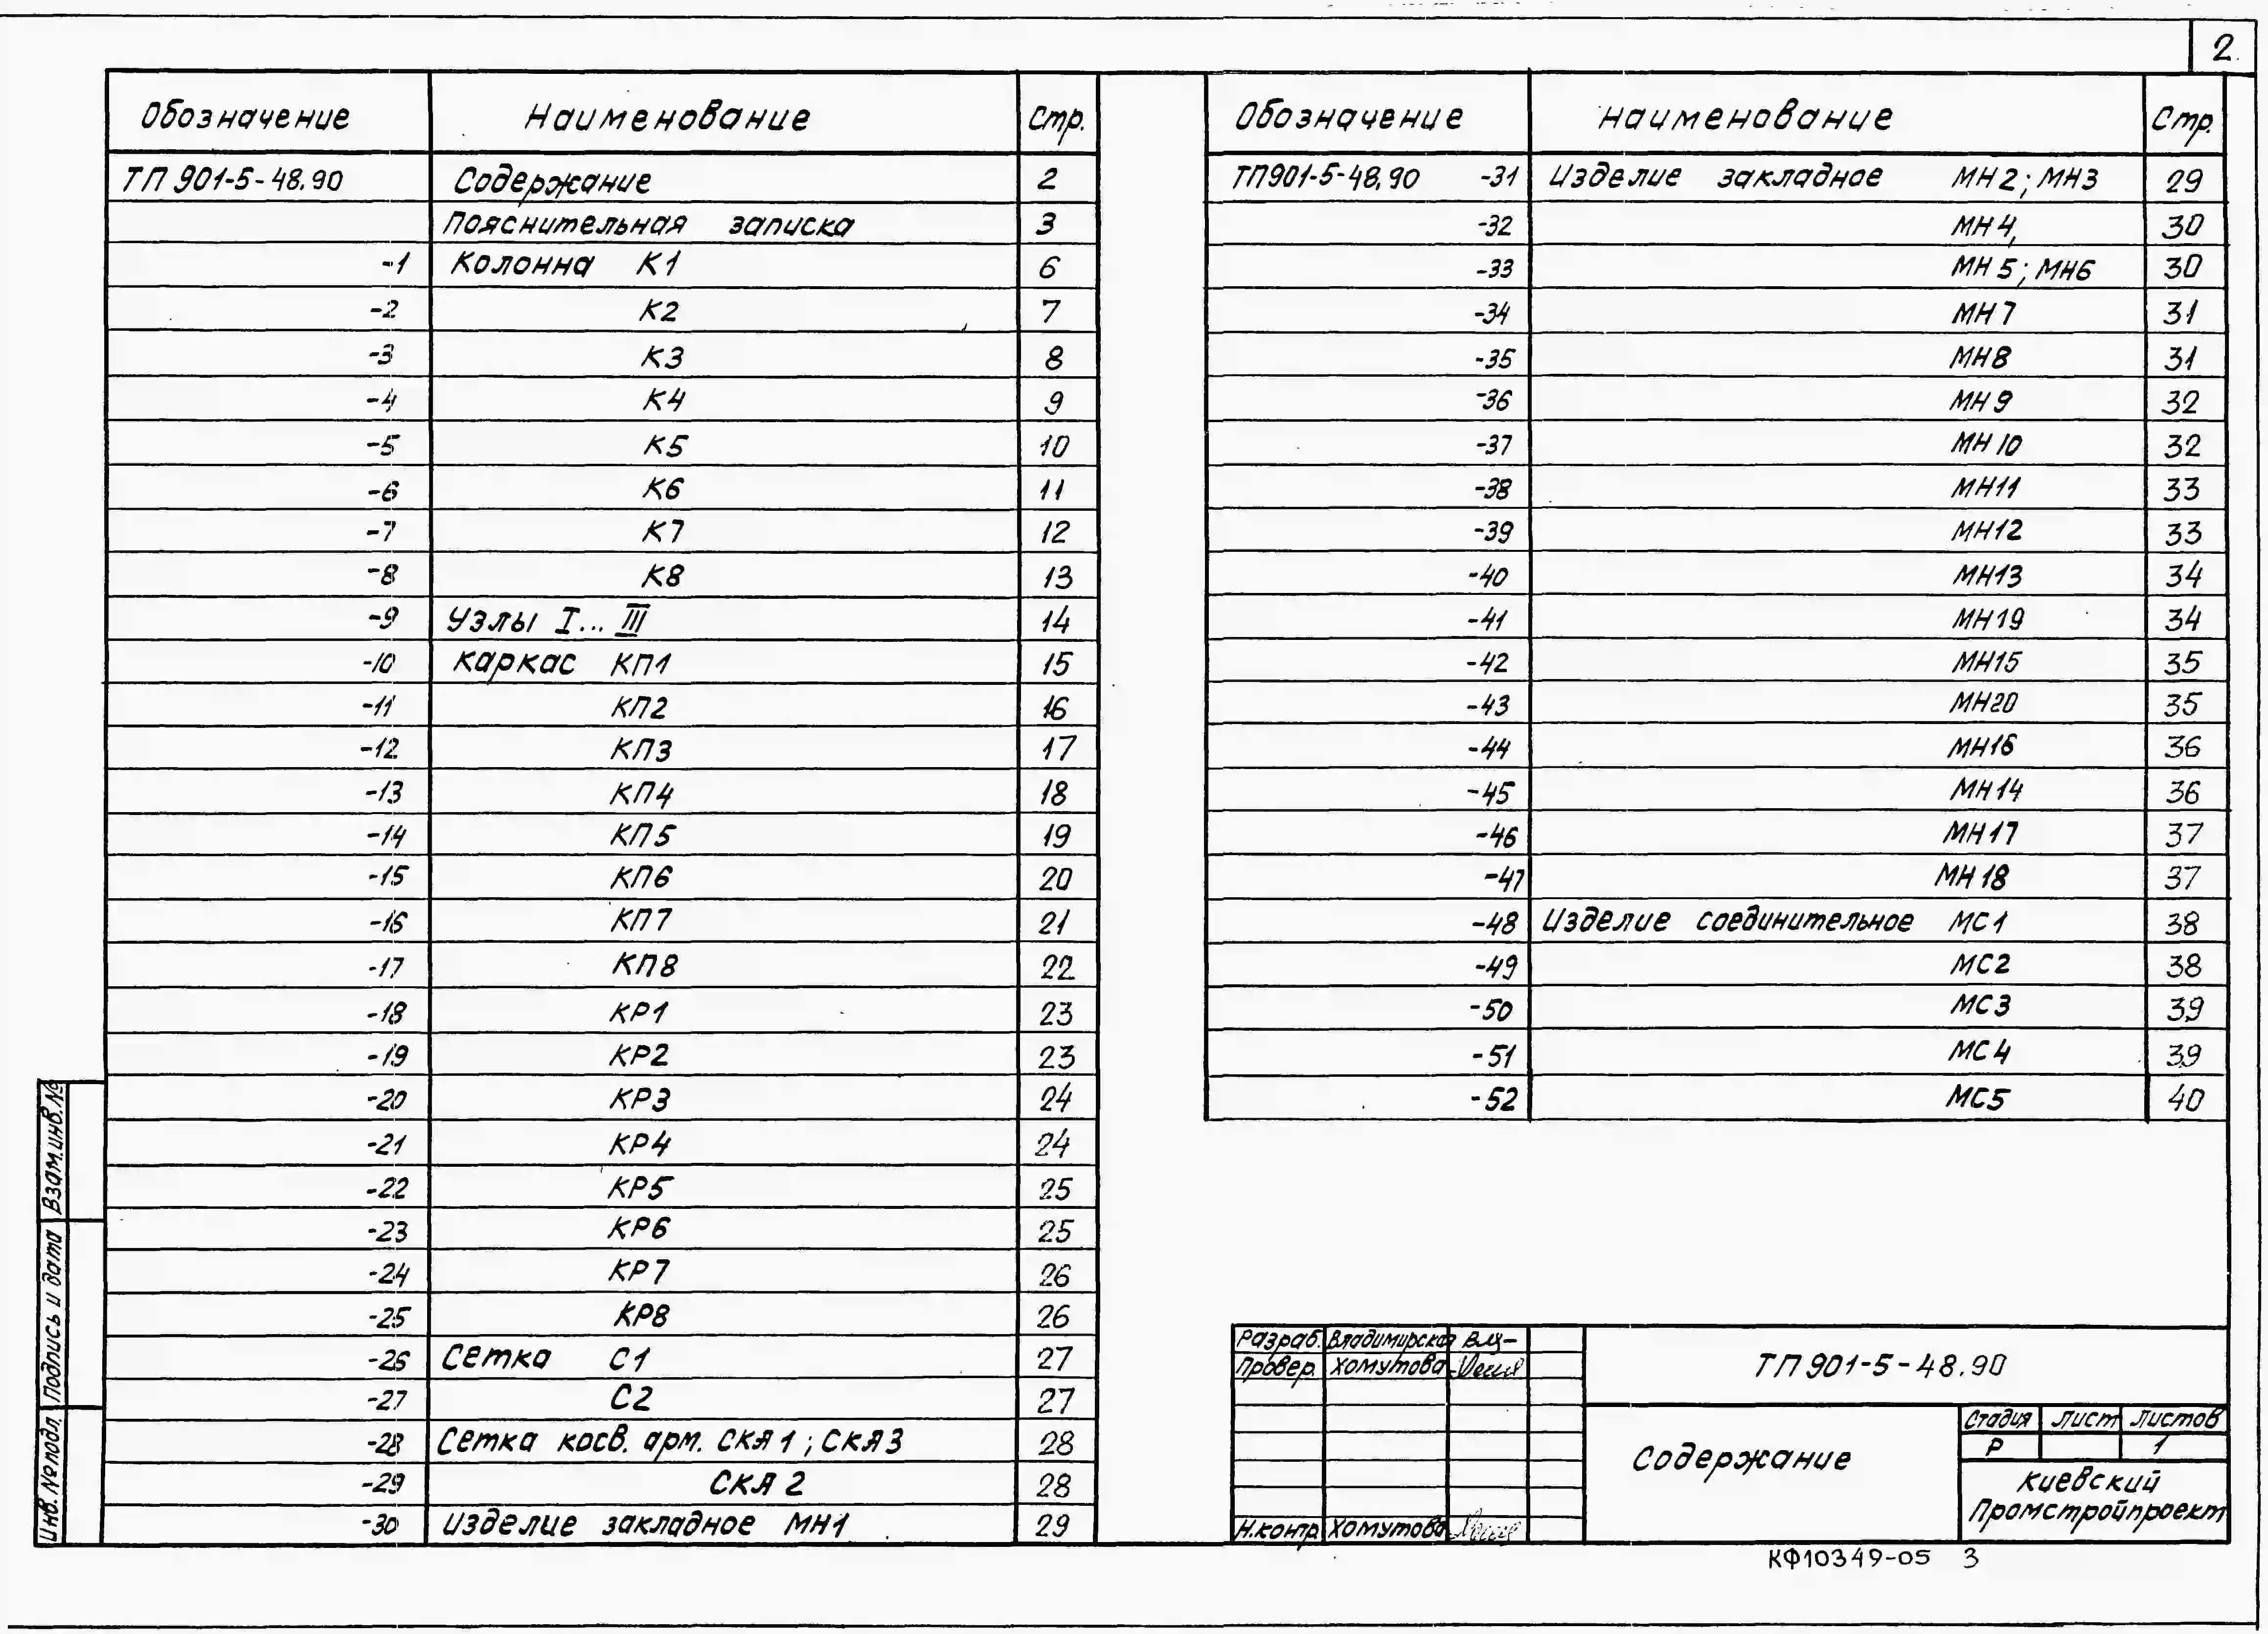 2
Обозначение Наименование Стр.
ТП 901-5-48.90 Содержание 2
Пояснительная записка 3
-1 Колонна К1 6
-2 К2 7
-3 К3 8
-4 К4 9
-5 К5 10
-6 К6 11
-7 К7 12
-8 К8 13
-9 Узлы I... III 14
-10 каркас КП1 15
-11 КП2 16
-12 КП3 17
-13 КП4 18
-14 КП5 19
-15 КП6 20
-16 КП7 21
-17 КП8 22
-18 КР1 23
-19 КР2 23
-20 КР3 24
-21 КР4 24
-22 КР5 25
-23 КР6 25
-24 КР7 26
-25 КР8 26
-26 Сетка С1 27
-27 С2 27
-28 Сетка косв. арм. СКЯ1; СКЯ3 28
-29 СКЯ 2 28
-30 Изделие закладное МН1 29
Обозначение Наименование Стр.
ТП901-5-48.90 -31 Изделие закладное МН2; МН3 29
-32 МН4, 30
-33 МН5; МН6 30
-34 МН7 31
-35 МН8 31
-36 МН9 32
-37 МН10 32
-38 МН11 33
-39 МН12 33
-40 МН13 34
-41 МН19 34
-42 МН15 35
-43 МН20 35
-44 МН16 36
-45 МН14 36
-46 МН17 37
-47 МН18 37
-48 Изделие соединительное МС1 38
-49 МС2 38
-50 МС3 39
-51 МС4 39
-52 МС5 40
Взам.инв.№
Подпись и дата
Инв.№подл.
Разраб. Владимирская
Провер. Хомутова
Н.контр. Хомутова
ТП 901-5-48.90
Содержание
Стадия Лист Листов
Р 1
Киевский
Промстройпроект
КФ10349-05 3